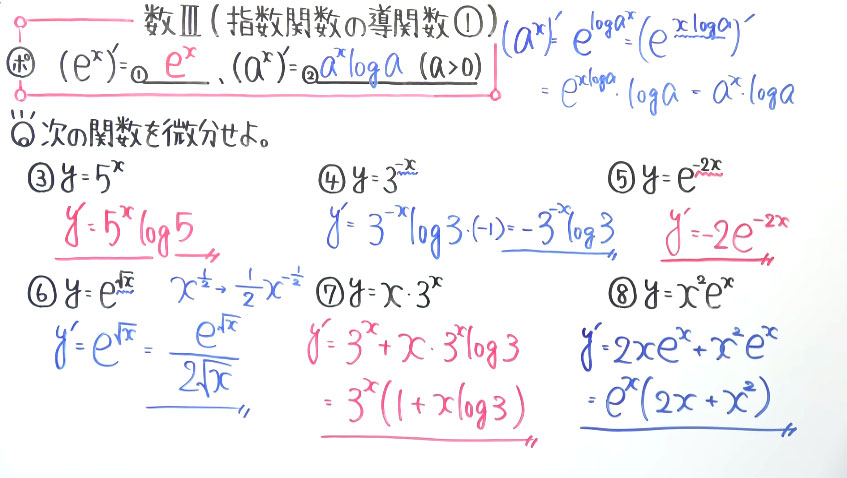 数Ⅲ(指数関数の導関数①)
(aˣ)'= e^{log aˣ} = (e^{x log a})'
= e^{x log a}・log a = aˣ・log a
ポ (eˣ)'=① eˣ 、(aˣ)'=② aˣ log a (a>0)
次の関数を微分せよ。
③ y=5ˣ
y'=5ˣ log 5
④ y=3^{-x}
y'=3^{-x} log 3・(-1)=-3^{-x} log 3
⑤ y=e^{-2x}
y'=-2e^{-2x}
⑥ y=e^{√x} x^{1/2}→1/2 x^{-1/2}
y'=e^{√x} = e^{√x}/2√x
⑦ y=x・3ˣ
y'=3ˣ+x・3ˣ log 3
=3ˣ(1+x log 3)
⑧ y=x²eˣ
y'=2xeˣ+x²eˣ
=eˣ(2x+x²)